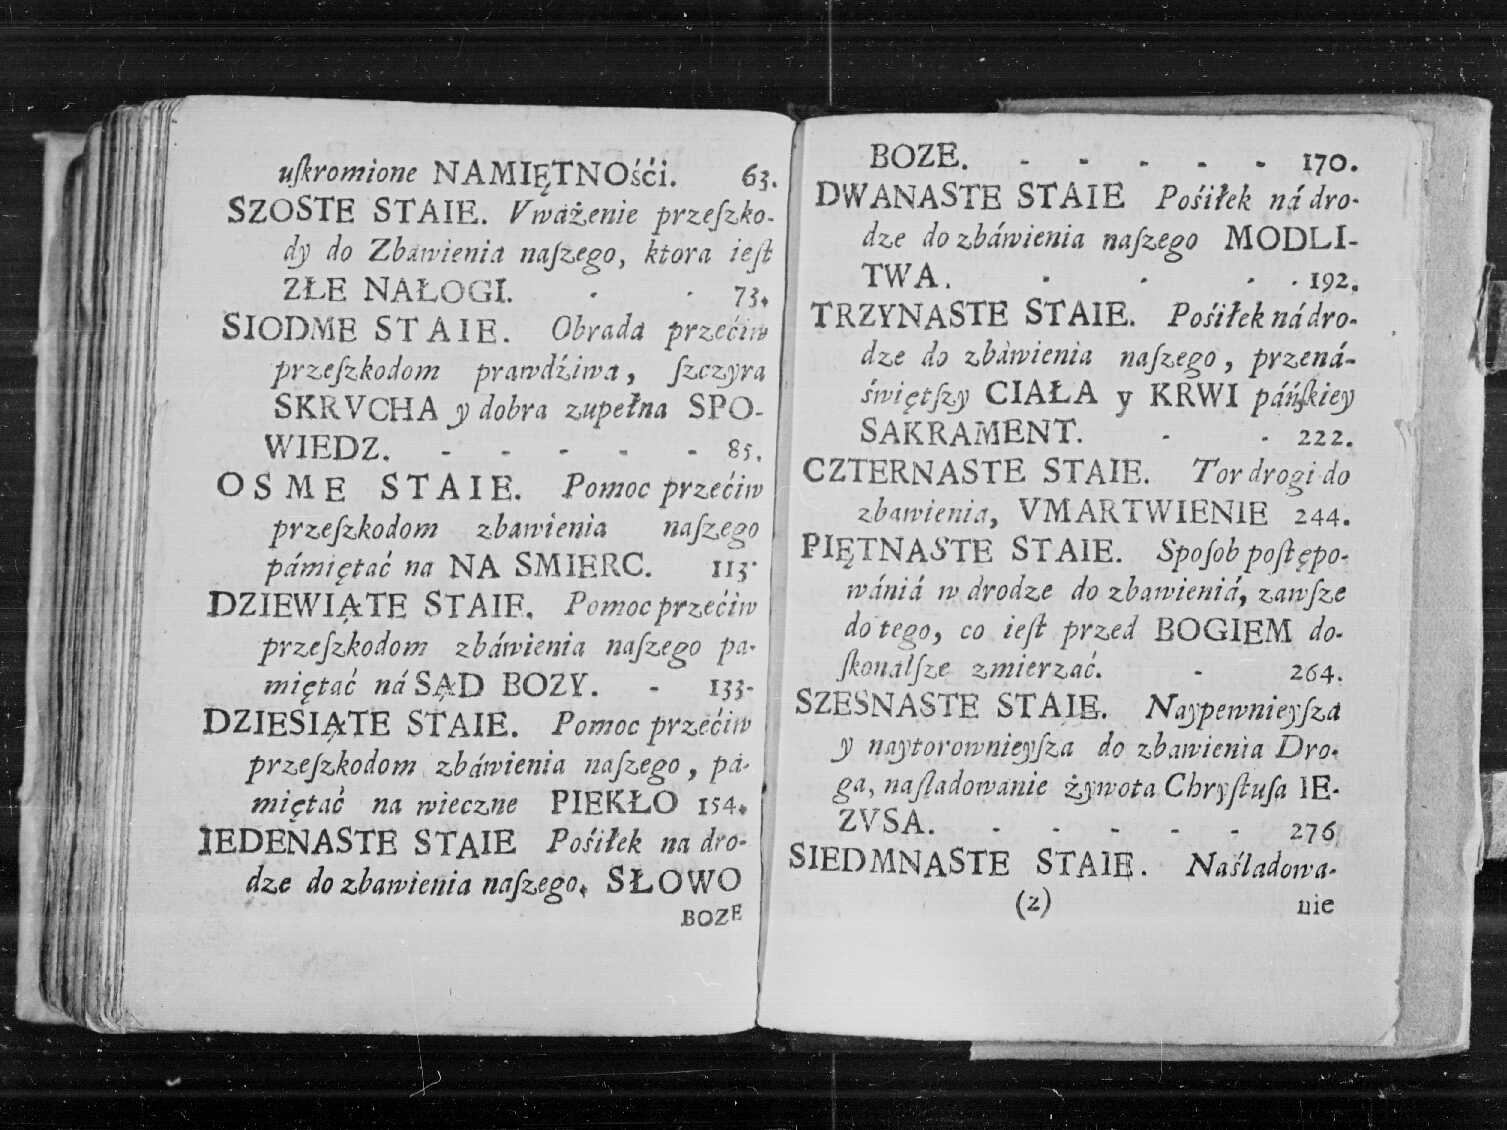 uſkromione NAMIĘTNOśći. 63.
SZOSTE STAIE. Vważenie przeſzko-
dy do Zbáwienia naſzego, ktora ieſt
ZŁE NAŁOGI. - - 73.
SIODME STAIE. Obrada przećiw
przeſzkodom prawdźiwa, ſzczyra
SKRVCHA y dobra zupełna SPO-
WIEDZ. - - - - - 85.
OSME STAIE. Pomoc przećiw
przeſzkodom zbawienia naſzego
pámiętać na NA SMIERC. 113.
DZIEWIĄTE STAIE. Pomoc przećiw
przeſzkodom zbáwienia naſzego pa-
miętać ná SĄD BOZY. - 133.
DZIESIĄTE STAIE. Pomoc przećiw
przeſzkodom zbáwienia naſzego, pá-
miętać na wieczne PIEKŁO 154.
IEDENASTE STAIE Pośiłek na dro-
dze do zbawienia naſzego, SŁOWO
BOZE
BOZE. - - - - - 170.
DWANASTE STAIE Pośiłek ná dro-
dze do zbáwienia naſzego MODLI-
TWA. - - - - 192.
TRZYNASTE STAIE. Pośiłek ná dro-
dze do zbáwienia naſzego, przená-
świętſzy CIAŁA y KRWI páńſkiey
SAKRAMENT. - - 222.
CZTERNASTE STAIE. Tor drogi do
zbawienia, VMARTWIENIE 244.
PIĘTNASTE STAIE. Spoſob poſtępo-
wániá w drodze do zbawieniá, zawſze
do tego, co ieſt przed BOGIEM do-
ſkonálſze zmierzać. - 264.
SZESNASTE STAIE. Naypewnieyſza
y naytorownieyſza do zbawienia Dro-
ga, naſladowanie żywota Chryſtuſa IE-
ZVSA. - - - - - 276.
SIEDMNASTE STAIE. Naśladowa-
(2) nie